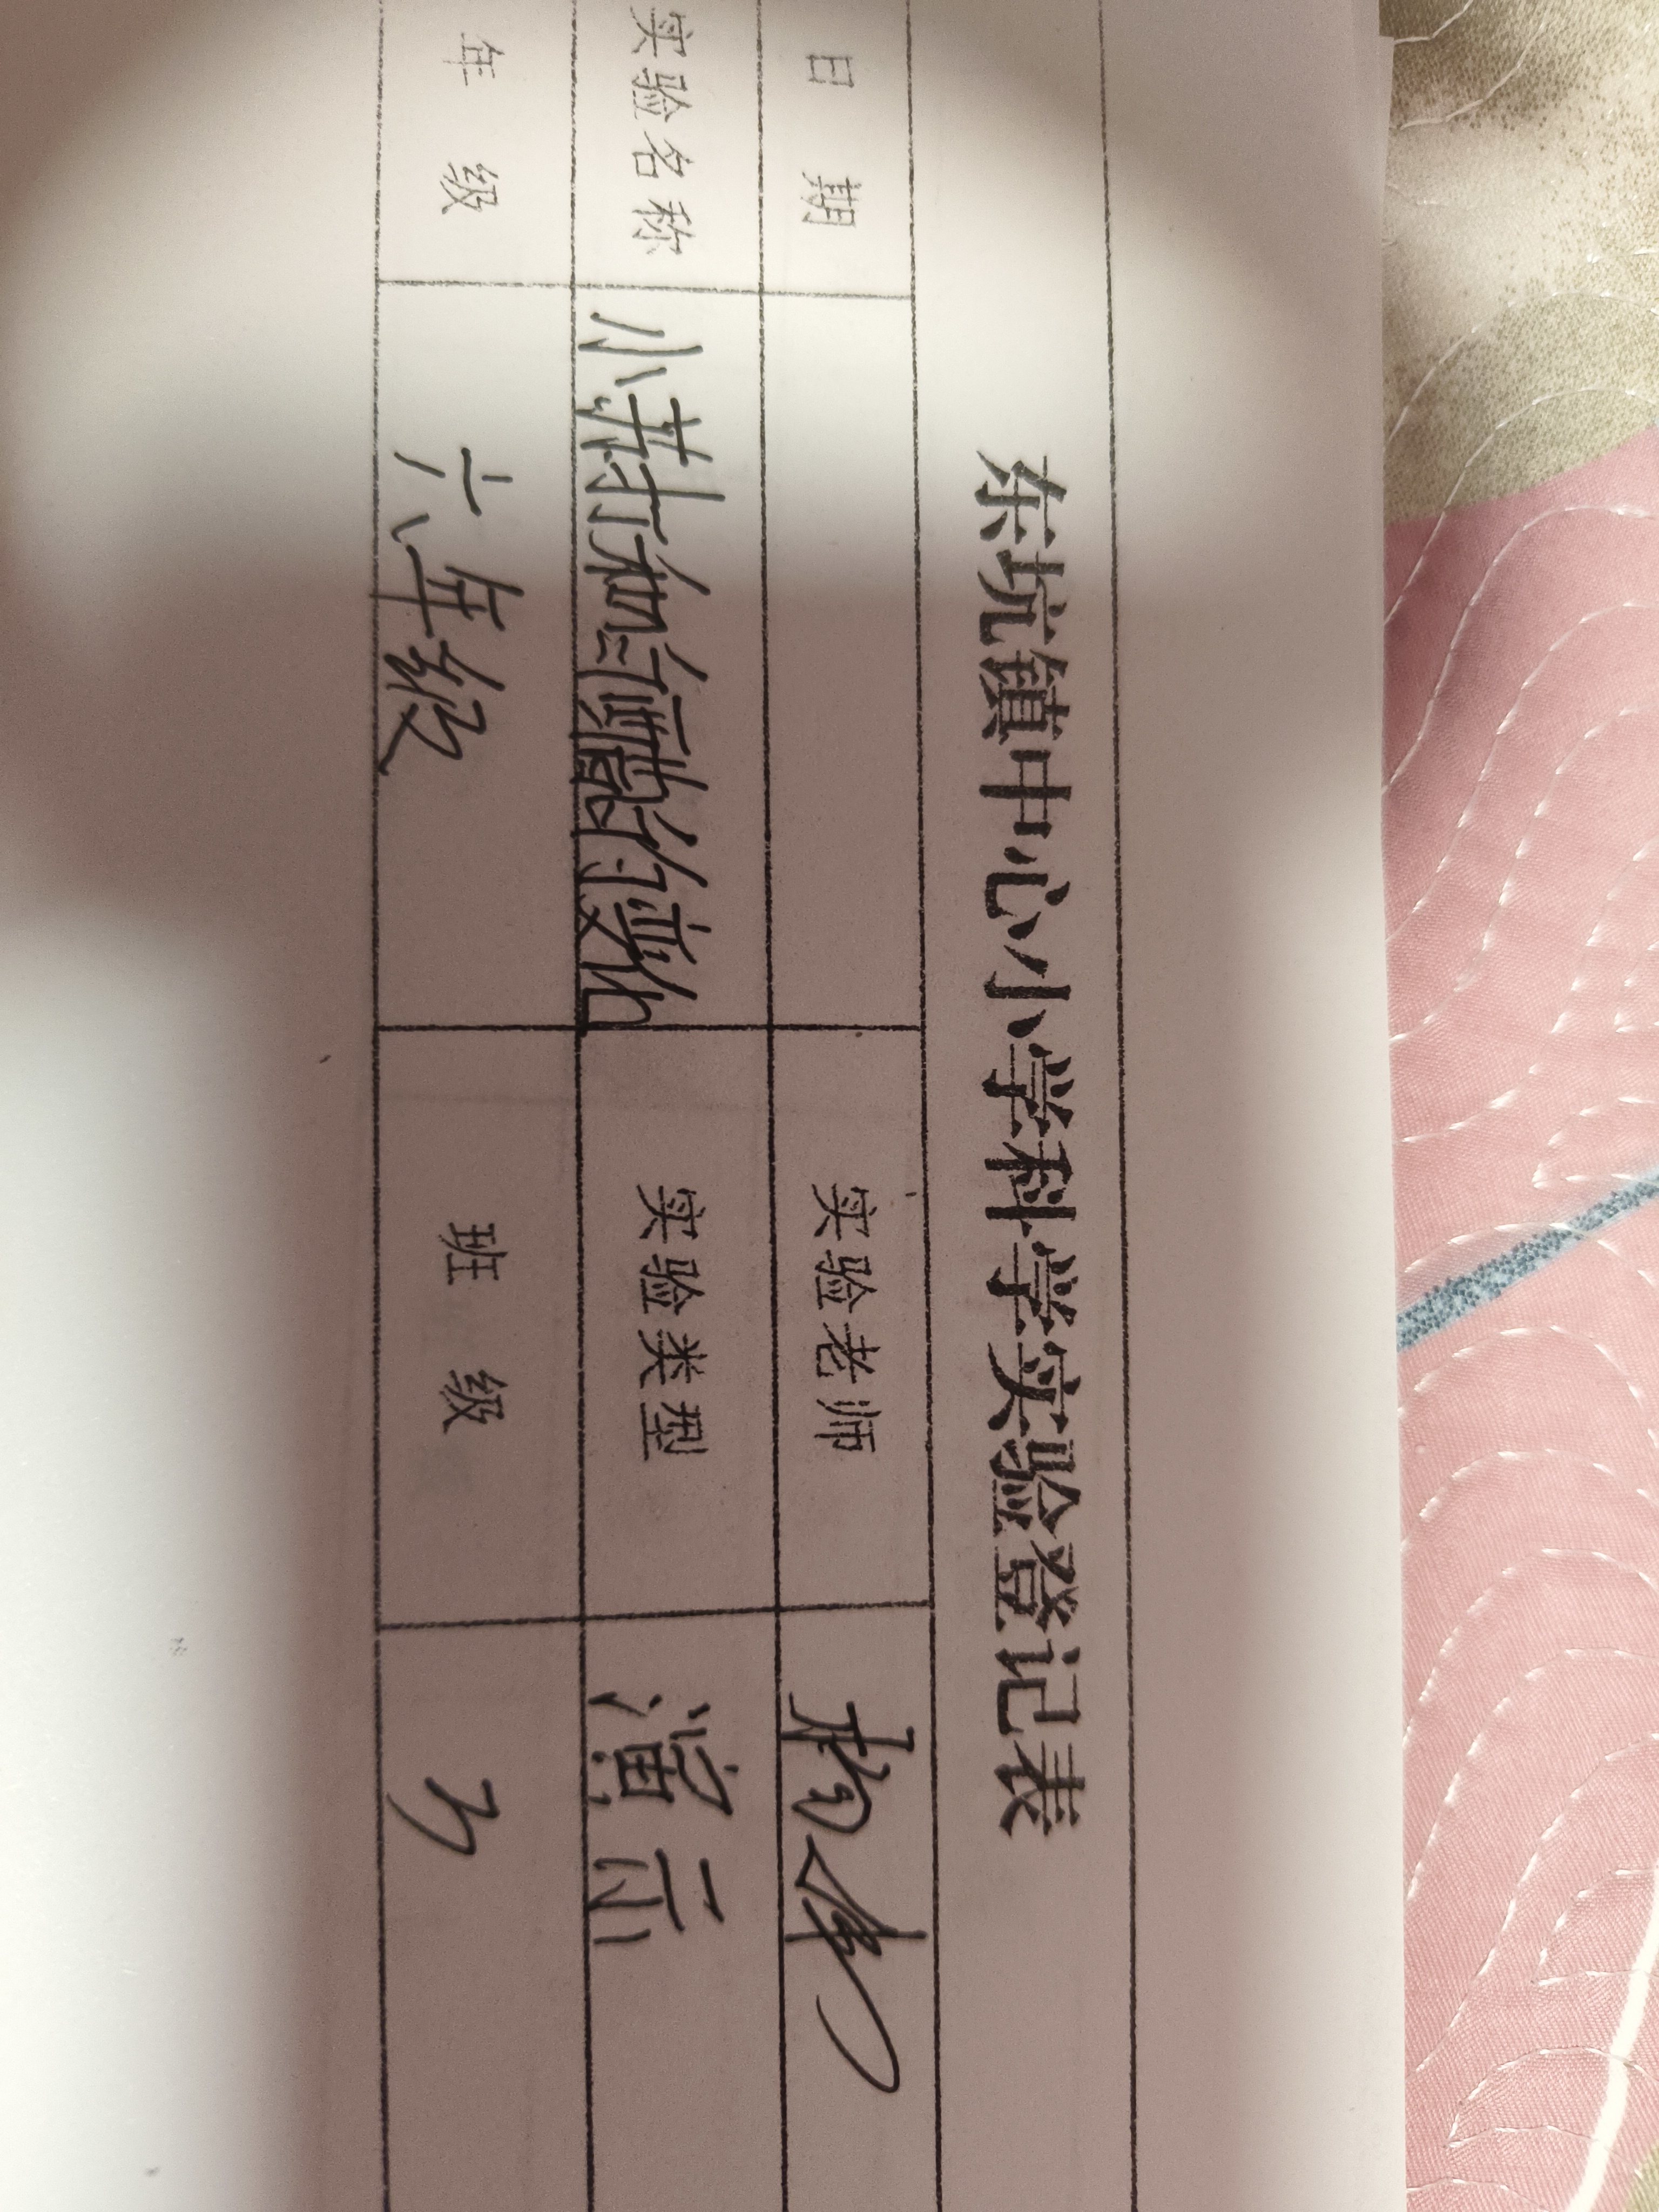 东坑镇中心小学科学实验登记表
日 期 实验老师
实验名称 小苏打和白醋的变化 实验类型 演示
年 级 六年级 班 级